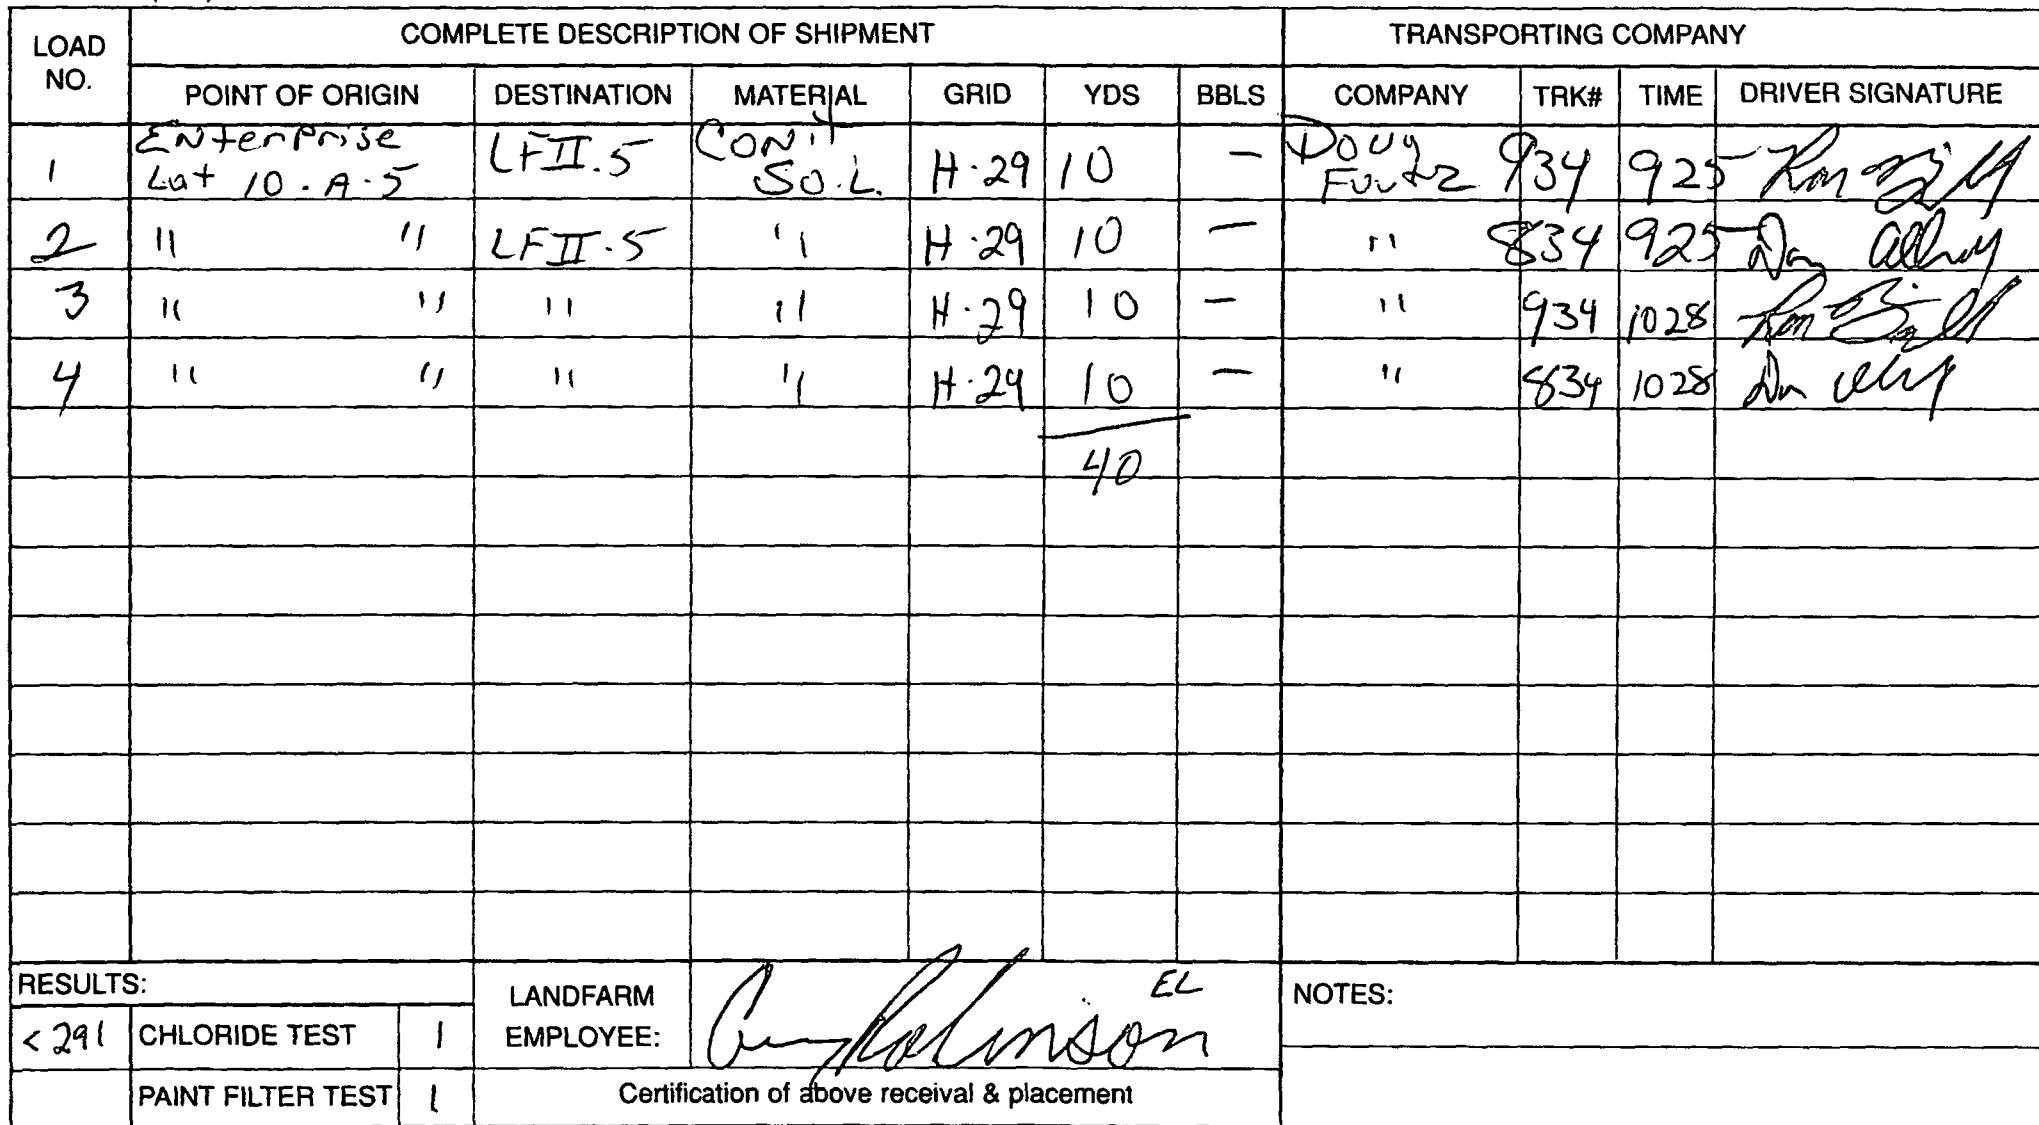 COMPLETE DESCRIPTION OF SHIPMENT TRANSPORTING COMPANY
LOAD NO. POINT OF ORIGIN DESTINATION MATERIAL GRID YDS BBLS COMPANY TRK# TIME DRIVER SIGNATURE
1 Enterprise Lat 10.A.5 LFII.5 Con't Soil H.29 10 — Doug Foutz 934 925
2 " " LFII.5 " H.29 10 — " 834 925
3 " " " " H.29 10 — " 934 1028
4 " " " " H.29 10 — " 834 1028
40
RESULTS:
<291 CHLORIDE TEST 1
PAINT FILTER TEST 1
LANDFARM
EMPLOYEE: Robinson EL
Certification of above receival & placement
NOTES: